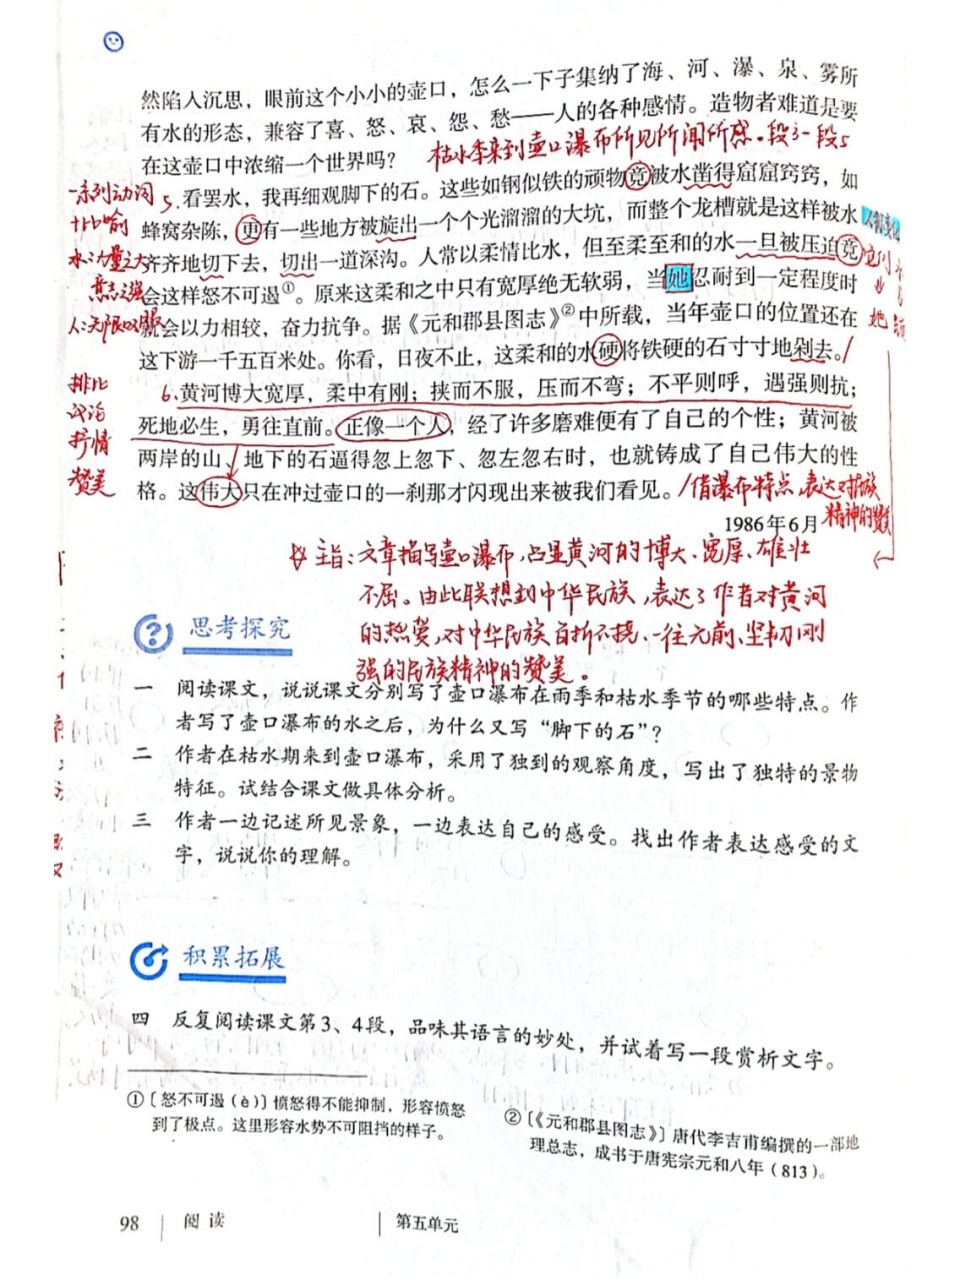 然陷入沉思，眼前这个小小的壶口，怎么一下子集纳了海、河、瀑、泉、雾所
有水的形态，兼容了喜、怒、哀、怨、愁——人的各种感情。造物者难道是要
在这壶口中浓缩一个世界吗？
枯水季来到壶口瀑布所见所闻所感。段3-段5
一系列动词
+比喻
水：力量之大
意志之强
人：无限
5.看罢水，我再细观脚下的石。这些如钢似铁的顽物竟被水凿得窟窟窍窍，如
蜂窝杂陈，更有一些地方被旋出一个个光溜溜的大坑，而整个龙槽就是这样被水
齐齐地切下去，切出一道深沟。人常以柔情比水，但至柔至和的水一旦被压迫竟
会这样怒不可遏①。原来这柔和之中只有宽厚绝无软弱，当她忍耐到一定程度时
就会以力相较，奋力抗争。据《元和郡县图志》②中所载，当年壶口的位置还在
这下游一千五百米处。你看，日夜不止，这柔和的水硬将铁硬的石寸寸地剁去。/
排比
议论
抒情
赞美
6.黄河博大宽厚，柔中有刚；挟而不服，压而不弯；不平则呼，遇强则抗；
死地必生，勇往直前。正像一个人，经了许多磨难便有了自己的个性；黄河被
两岸的山、地下的石逼得忽上忽下、忽左忽右时，也就铸成了自己伟大的性
格。这伟大只在冲过壶口的一刹那才闪现出来被我们看见。
/借瀑布特点，表达对民族
精神的赞美
1986年6月
主旨：文章描写壶口瀑布，凸显黄河的博大、宽厚、雄壮
不屈。由此联想到中华民族，表达了作者对黄河
的热爱，对中华民族百折不挠、一往无前、坚韧刚
强的民族精神的赞美。
思考探究
一 阅读课文，说说课文分别写了壶口瀑布在雨季和枯水季节的哪些特点。作
者写了壶口瀑布的水之后，为什么又写“脚下的石”？
二 作者在枯水期来到壶口瀑布，采用了独到的观察角度，写出了独特的景物
特征。试结合课文做具体分析。
三 作者一边记述所见景象，一边表达自己的感受。找出作者表达感受的文
字，说说你的理解。
积累拓展
四 反复阅读课文第3、4段，品味其语言的妙处，并试着写一段赏析文字。
①〔怒不可遏（è）〕愤怒得不能抑制，形容愤怒
到了极点。这里形容水势不可阻挡的样子。
②〔《元和郡县图志》〕唐代李吉甫编撰的一部地
理总志，成书于唐宪宗元和八年（813）。
98 阅读 第五单元